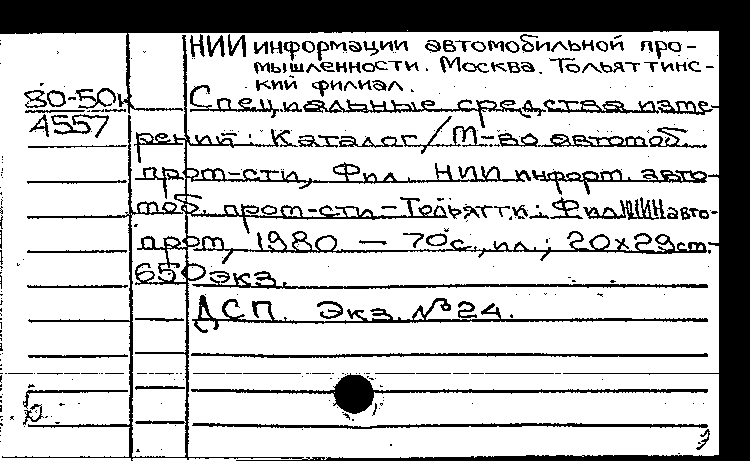 НИИ информации автомобильной про-
мышленности. Москва. Тольяттинс-
кий филиал.
80-50к Специальные средства изме-
4557 рений: Каталог/М-во автомоб.
пром-сти, Фил. НИИ информ. авто-
моб. пром-сти - Тольятти: Фил НИИНавто-
пром, 1980 - 70с., ил.; 20х29см.-
650экз.
ДСП. Экз. №24.